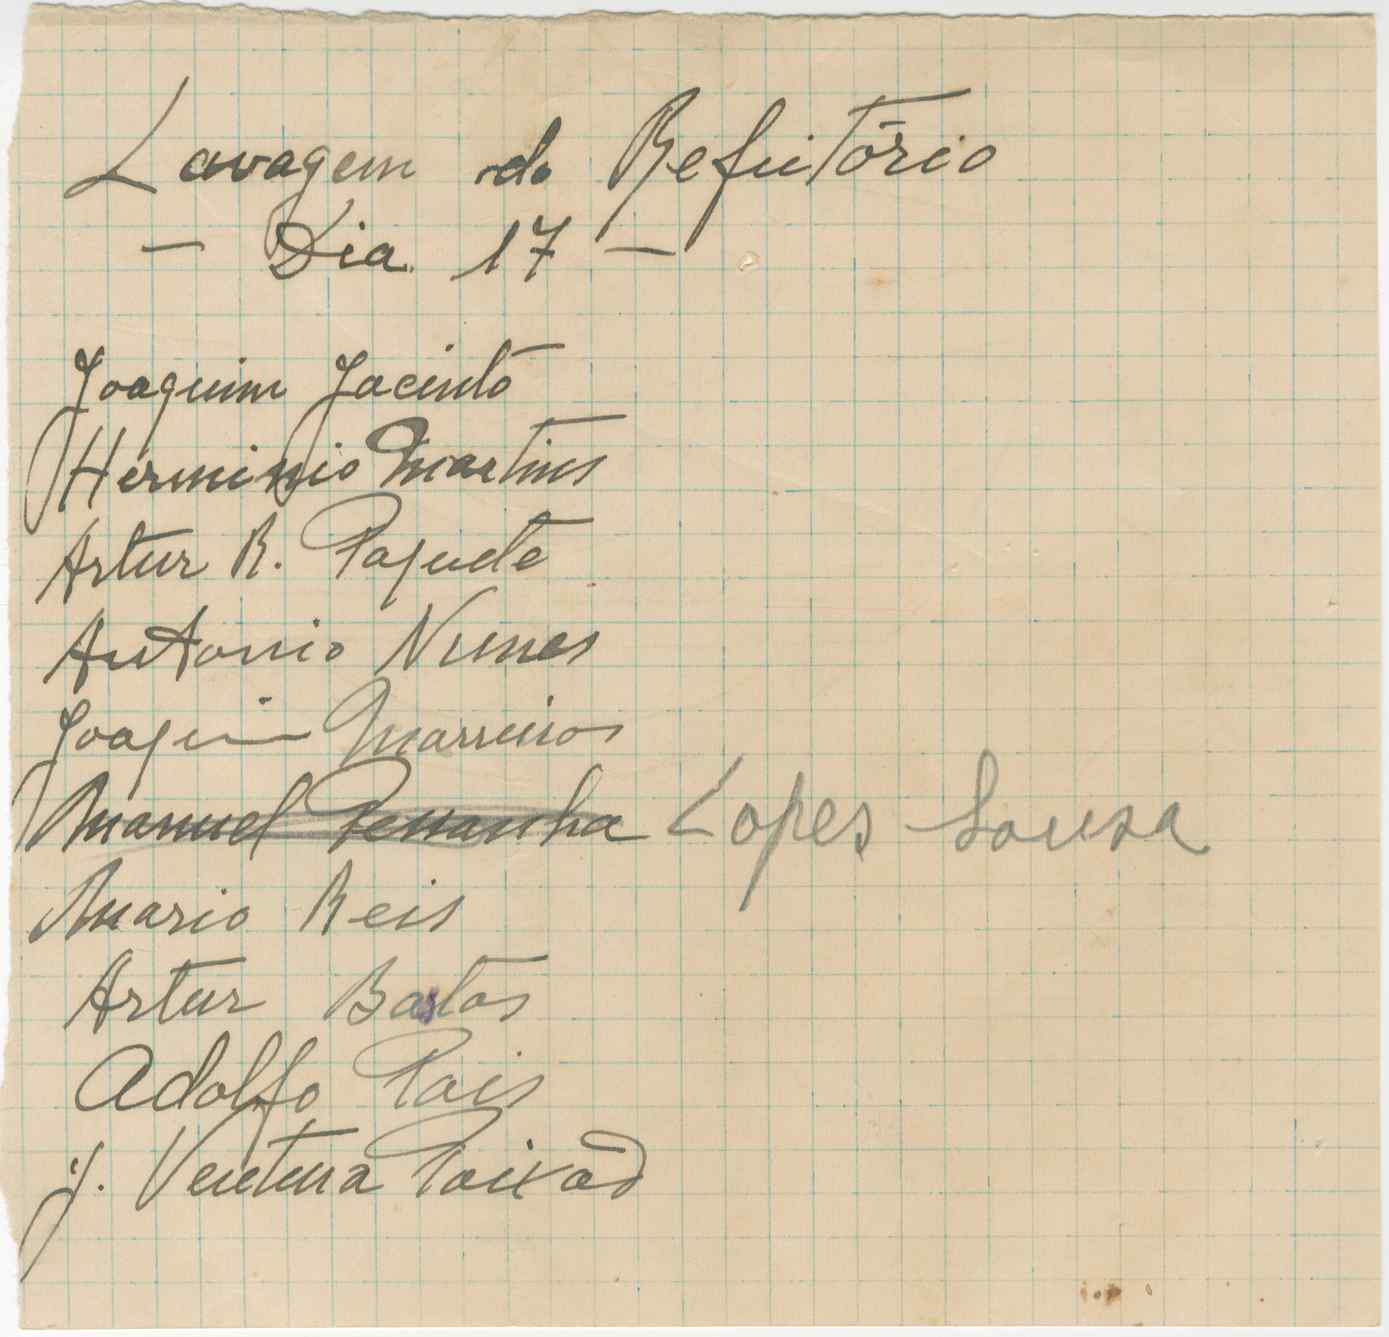 Lavagem do Refeitório
— Dia 17 —
Joaquim Jacinto
Herminio Martins
Artur R. Paquete
Antonio Nunes
Joaquim Marreiros
Manuel Pessanha Lopes Sousa
Mario Reis
Artur Bastos
Adolfo Pais
J. Ventura Paixão